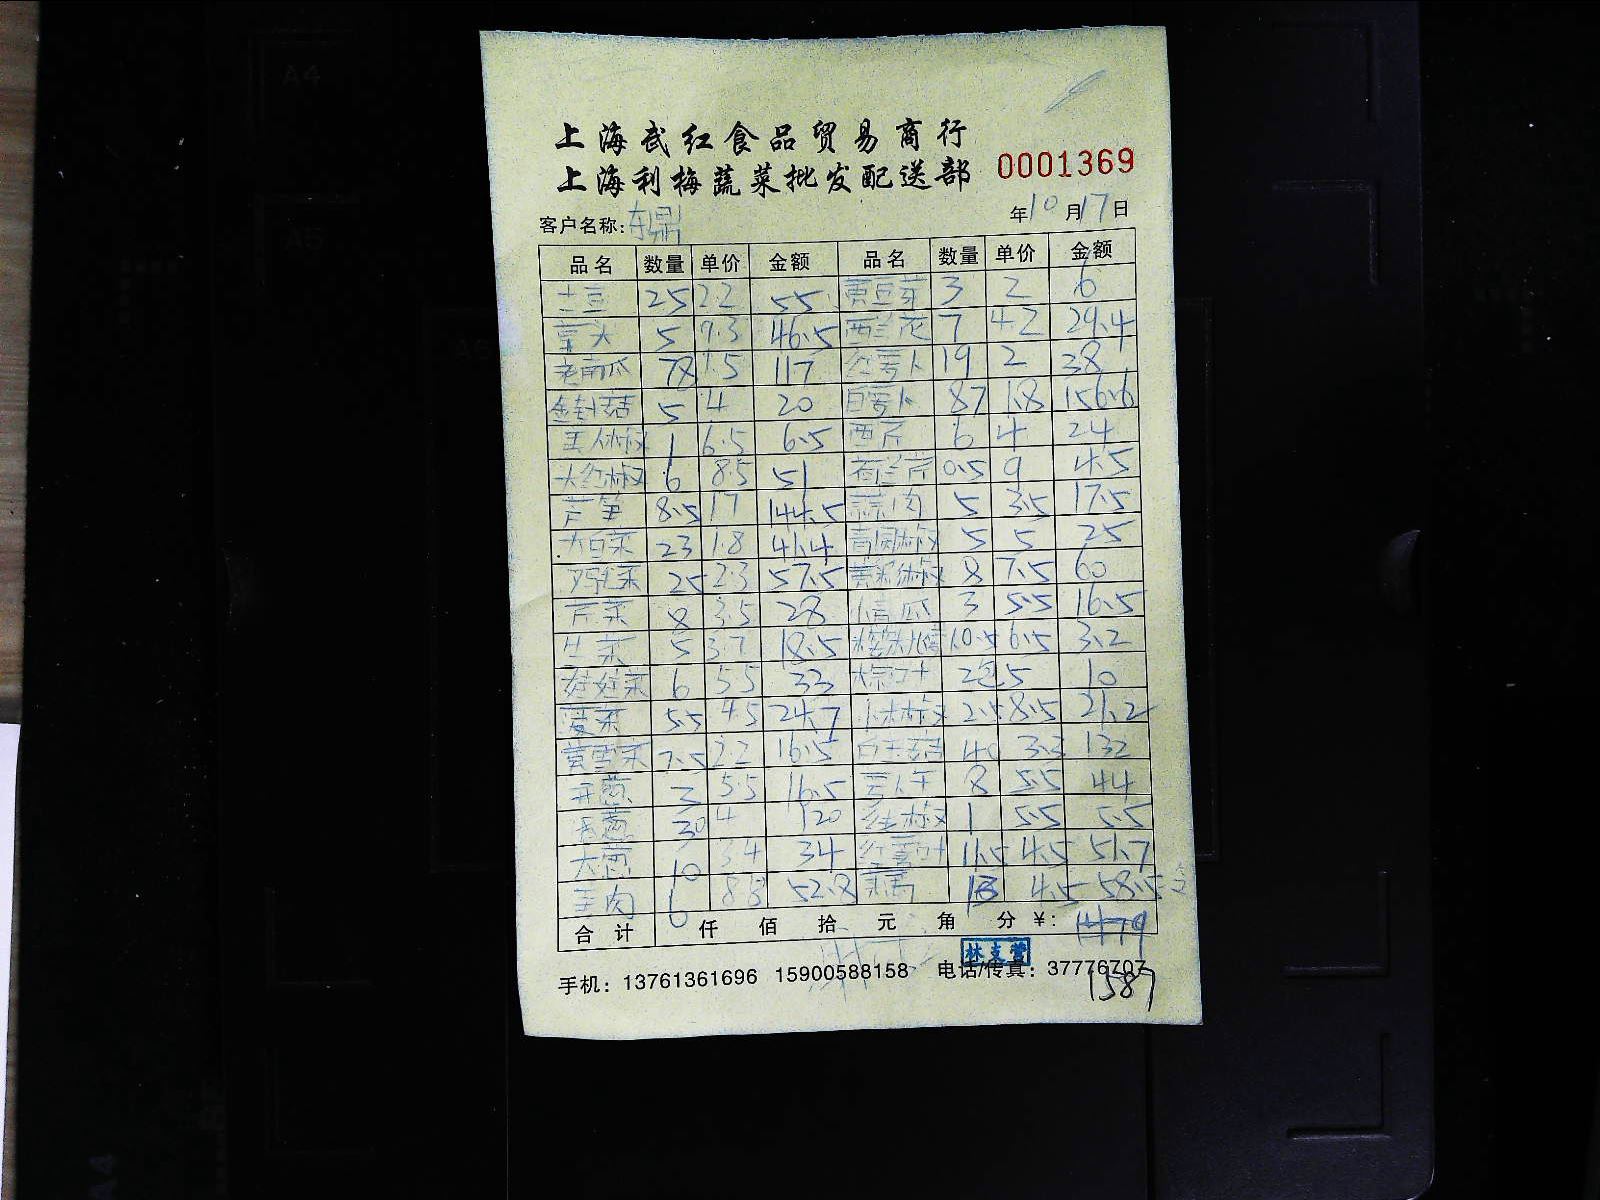 上海武红食品贸易商行
上海利梅蔬菜批发配送部 0001369
客户名称: 东鼎 年10月17日
品名 数量 单价 金额 品名 数量 单价 金额
土豆 25 2.2 55 黄豆芽 3 2 6
5 9.3 46.5 西兰花 7 4.2 29.4
老南瓜 78 1.5 117 红萝卜 19 2 38
金针菇 5 4 20 白萝卜 87 1.8 156.6
1 6.5 6.5 西芹 6 4 24
大红椒 6 8.5 51 荷兰芹 0.5 9 4.5
芦笋 8.5 17 144.5 蒜肉 5 3.5 17.5
大白菜 23 1.8 41.4 青圆椒 5 5 25
鸡毛菜 25 2.3 57.5 黄彩椒 8 7.5 60
芹菜 8 3.5 28 瓜 3 5.5 16.5
生菜 5 3.7 18.5 0.5 6.5 3.2
娃娃菜 6 5.5 33 棕叶 2包 5 10
5.5 4.5 24.7 小米椒 2.5 8.5 21.2
7.5 2.2 16.5 白玉菇 40 3.3 132
3 5.5 16.5 萝卜干 8 5.5 44
30 4 120 红椒 1 5.5 5.5
大葱 10 3.4 34 11.5 4.5 51.7
6 8.8 52.8 13 4.5 58.5
合计 仟 佰 拾 元 角 分 ¥: 1479
林支营
手机: 13761361696 15900588158 电话/传真: 37776707
1587